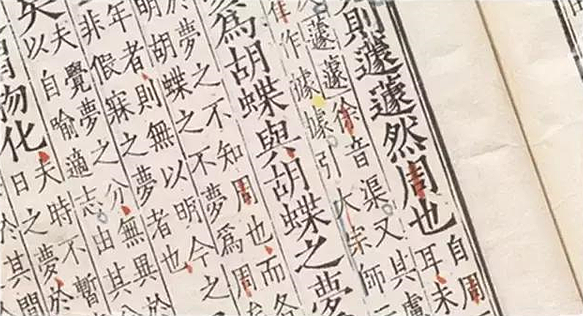 則蘧蘧然周也
自周
耳未
蘧蘧徐音渠又其慮
作據據引大宗師云
為胡蝶與胡蝶之夢
於夢之不知周也而各
明胡蝶之不夢為周矣
年者則無以明今之
非假寐之夢者也
夫覺夢之分無異於
以自喻適志由其分
矣
謂物化
夫時不暫
日之夢於
於其間